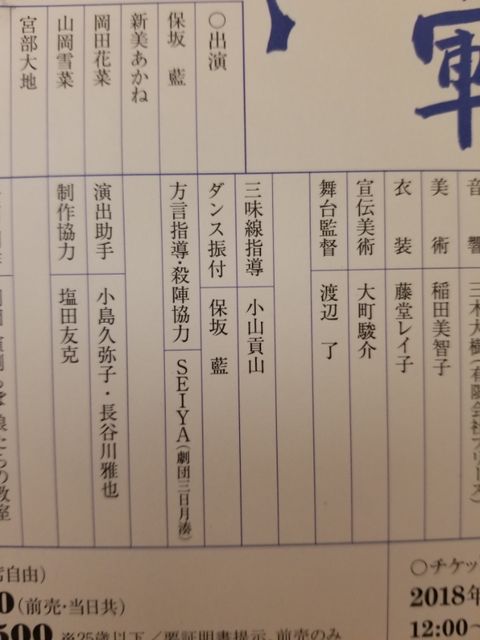 軍
○出演
保坂 藍
新美あかね
岡田花菜
山岡雪菜
宮部大地
音響
美術 稲田美智子
衣装 藤堂レイ子
宣伝美術 大町駿介
舞台監督 渡辺 了
三味線指導 小山貢山
ダンス振付 保坂 藍
方言指導・殺陣協力 SEIYA(劇団三日月湊)
演出助手 小島久弥子・長谷川雅也
制作協力 塩田友克
席自由)
0(前売・当日共)
500 ※25歳以下/要証明書提示、前売のみ
○チケッ
2018年
12:00~